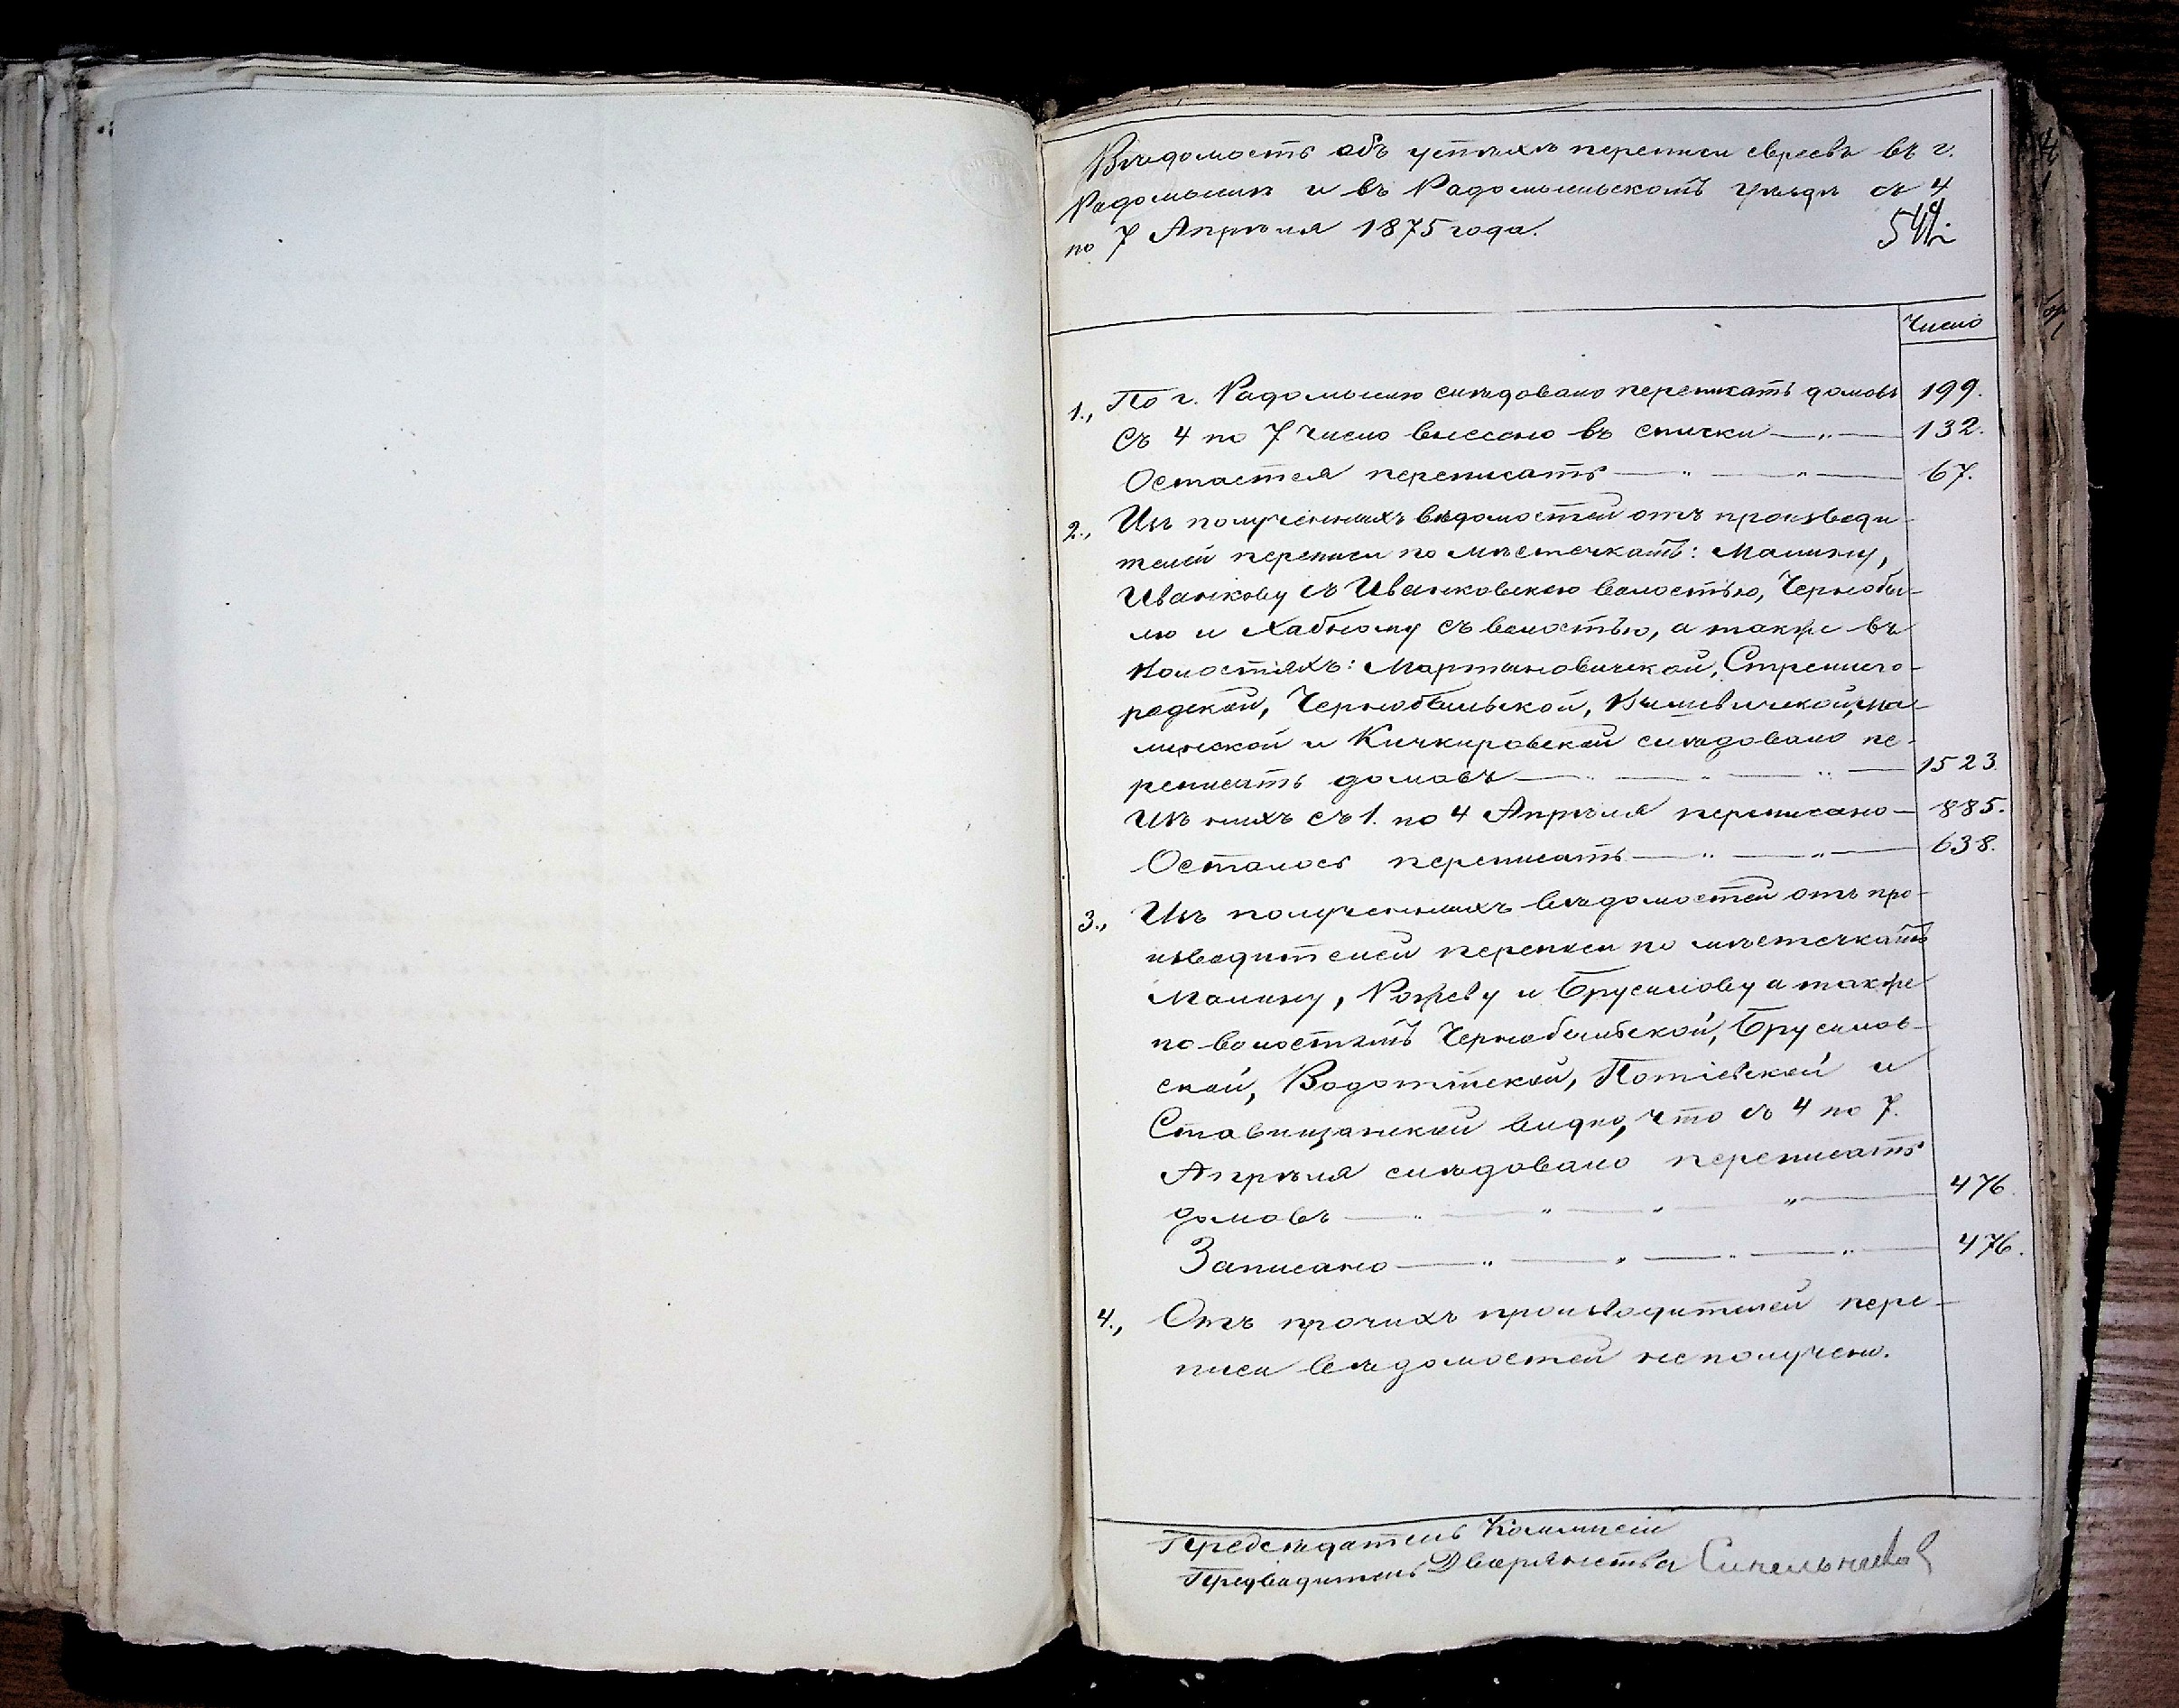 Вѣдомость объ успѣхѣ переписи евреевъ въ г.
Радомыслѣ и въ Радомысльскомъ уѣздѣ съ 4
по 7 Апрѣля 1875 года.
Число
1., По г. Радомыслю слѣдовало переписать домовъ 199.
Съ 4 по 7 число внесено въ списки — „ — 132.
Остается переписать — „ — „ — 67.
2., Изъ полученныхъ вѣдомостей отъ производи-
телей переписи по мѣстечкамъ: Малину,
Иванкову съ Иванковскою волостью, Чернобы-
лю и Хабному съ волостью, а также въ
волостяхъ: Мартыновичской, Стремиго-
родской, Чернобыльской, Вышевичской, Ма-
линской и Кичкировской слѣдовало пе-
реписать домовъ — „ — „ — „ — 1523.
Изъ нихъ съ 1. по 4 Апрѣля переписано — 885.
Осталось переписать — „ — „ — 638.
3., Изъ полученныхъ вѣдомостей отъ про-
изводителей переписи по мѣстечкамъ
Малину, Рожеву и Брусилову а также
по волостямъ Чернобыльской, Брусилов-
ской, Водотыйской, Потіевской и
Ставищанской видно, что съ 4 по 7.
Апрѣля слѣдовало переписать
домовъ — „ — „ — „ — „ — 476.
Записано — „ — „ — „ — „ — 476.
4., Отъ прочихъ производителей пере-
писи вѣдомостей не получено.
Предсѣдатель Коммисіи
Предводитель Дворянства Синельников